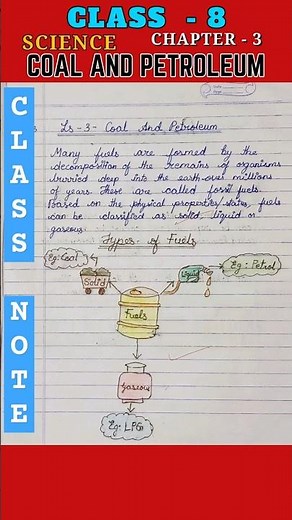 CLASS - 8
SCIENCE CHAPTER - 3
COAL AND PETROLEUM
CLASS NOTE
Ls-3- Coal And Petroleum
Many fuels are formed by the
decomposition of the remains of organisms
burried deep into the earth over millions
of years. These are called fossil fuels.
Based on the physical properties/states, fuels
can be classified as solid, liquid or
gaseous.
Types of Fuels
Eg: Coal
Solid
Liquid
Eg: Petrol
Fuels
Gaseous
Eg: LPG